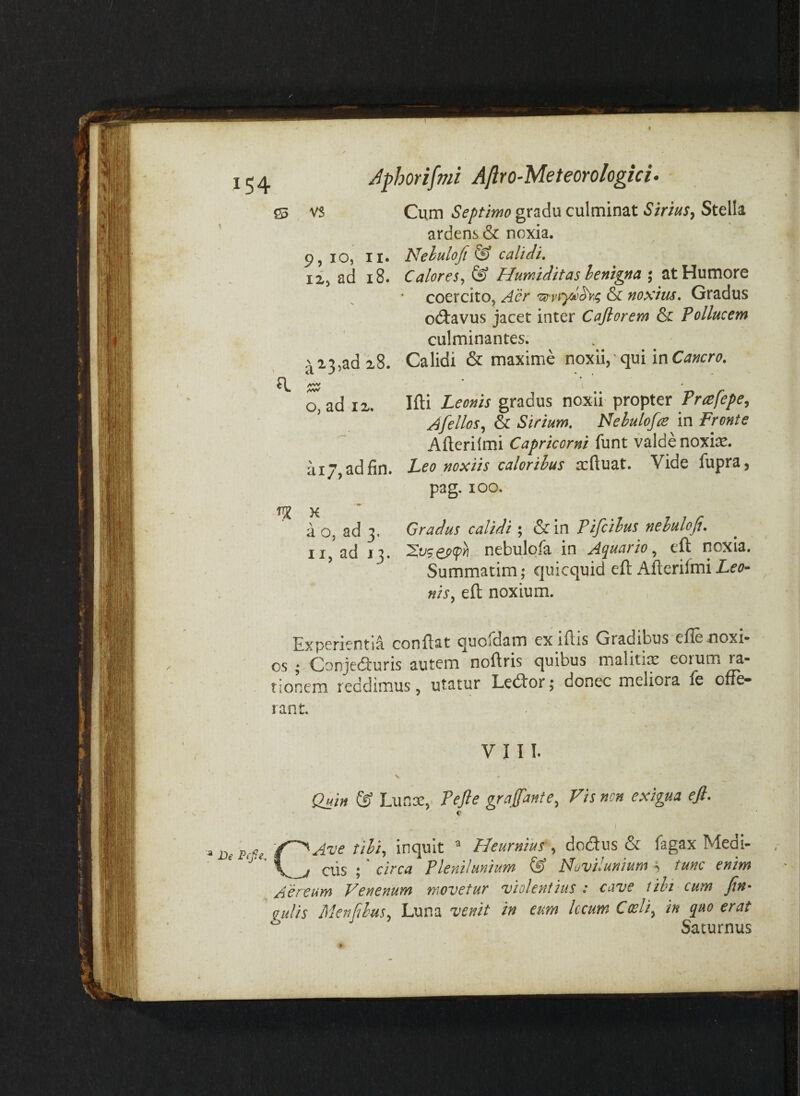 154 Aphoriſmi Aſtro-Meteorologici.
♋ ♑ Cum Septimo gradu culminat Sirius, Stella
ardens & noxia.
9, 10, 11. Nebuloſi & calidi.
12, ad 18. Calores, & Humiditas benigna ; at Humore
coercito, Aër & noxius. Gradus
octavus jacet inter Caſtorem & Pollucem
culminantes.
à 23, ad 28. Calidi & maximè noxii, qui in Cancro.
♌ ♒
0, ad 12. Iſti Leonis gradus noxii propter Præſepe,
Aſellos, & Sirium. Nebuloſæ in Fronte
Aſteriſmi Capricorni ſunt valde noxiæ.
à 17, ad fin. Leo noxiis caloribus æſtuat. Vide ſupra,
pag. 100.
♍ ♓
à 0, ad 3. Gradus calidi ; & in Piſcibus nebuloſi.
11, ad 13. nebuloſa in Aquario, eſt noxia.
Summatim ; quicquid eſt Aſteriſmi Leo-
nis, eſt noxium.
Experientiâ conſtat quoſdam ex iſtis Gradibus eſſe noxi-
os ; Conjecturis autem noſtris quibus malitiæ eorum ra-
tionem reddimus, utatur Lector ; donec meliora ſe offe-
rant.
VIII.
Quin & Lunæ, Peſte graſſante, Vis non exigua eſt.
a De Peſte. CAve tibi, inquit a Heurnius, doctus & ſagax Medi-
cus ; circa Plenilunium & Novilunium ; tunc enim
Aëreum Venenum movetur violentius : cave tibi cum ſin-
gulis Menſibus, Luna venit in eum locum Cœli, in quo erat
Saturnus